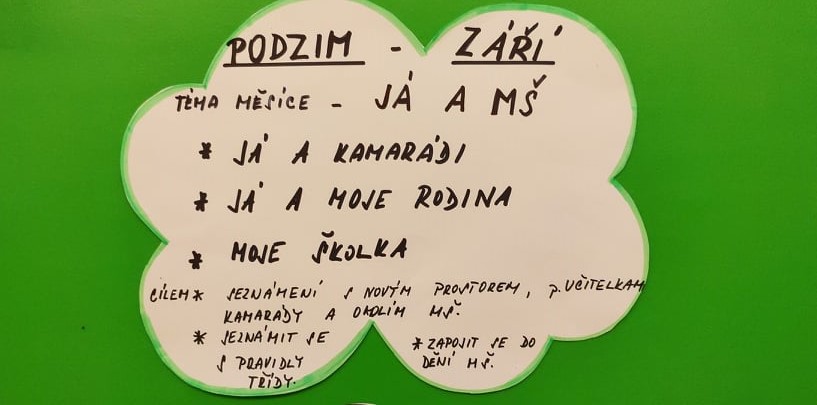 PODZIM - ZÁŘÍ
TÉMA MĚSÍCE - JÁ A MŠ
* JÁ A KAMARÁDI
* JÁ A MOJE RODINA
* MOJE ŠKOLKA
CÍLEM * SEZNÁMENÍ S NOVÝM PROSTOREM, p. UČITELKAM
KAMARÁDY A OKOLÍM MŠ.
* SEZNÁMIT SE
S PRAVIDLY
TŘÍDY.
* ZAPOJIT SE DO
DĚNÍ MŠ.